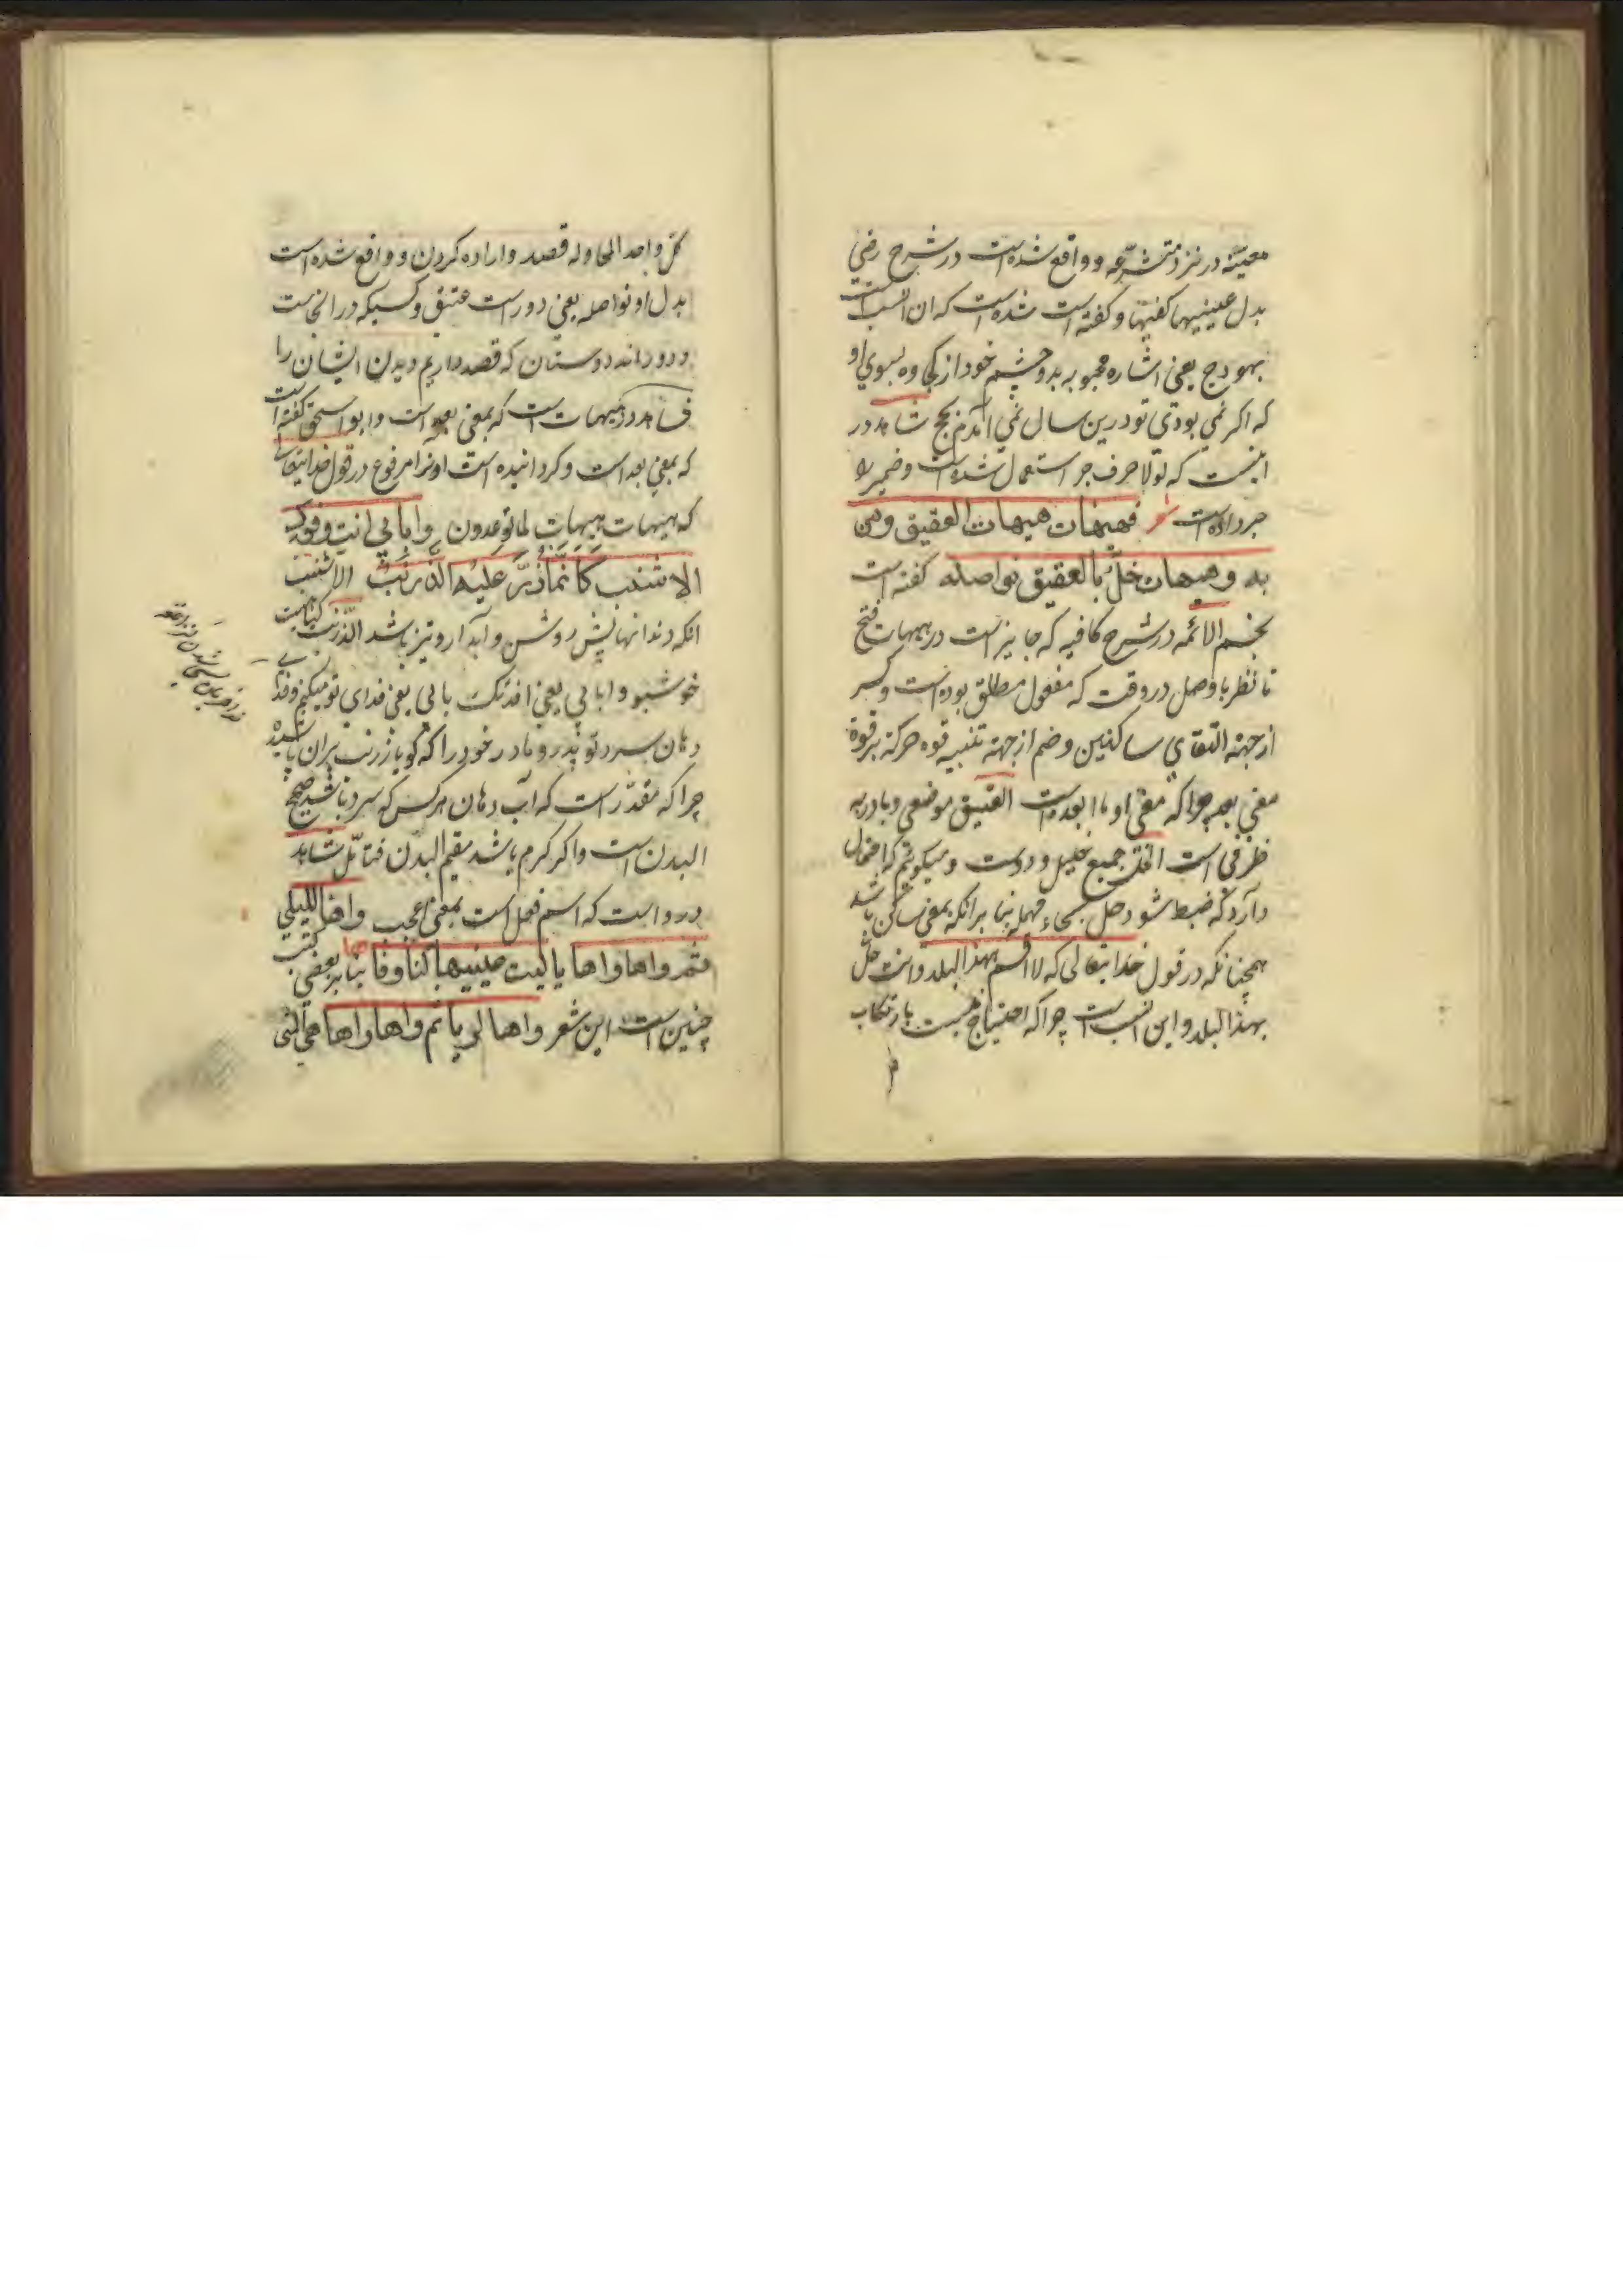 معینه در نزد متشرعه و واقع شده است در شرح رضی
بدل عینیها کفیها و کفته است شده است که ان انسب است
بهودج یعنی اشاره محبوبه بدو چشم خود از کجاوه بسوی او
که اکر نمی بودی تو درین سال نمی امدم بحج شاهد در
اینست که لولا حرف جر استعمال شده است و ضمیر را
جر داده است شعر فهیهات هیهات العقیق و من
به وهیهات خل بالعقیق نواصله کفته است
نجم الائمه در شرح کافیه که جایز است در هیهات فتح
تا نظر باوصل در وقت که مفعول مطلق بوده است و کسر
از جهته التقای ساکنین و ضم از جهته تنبیه قوه حرکة بر قوة
معنی بعد چرا که معنی او ما ابعده است العقیق موضعی و با در به
ظرفی است الخل جمیع خلیل و دوست و میکوئیم که احتمال
دارد که ضبط شود حل بحاء مهمله بنا بر انکه بمعنی ساکن باشد
همچنانکه در قول خدایتعالی که لا اقسم بهذا البلد و انت حل
بهذا البلد و این انسب است چرا که احتیاج نیست بارتکاب
کل واحد المحاوله قصد و اراده کردن و واقع شده است
بدل او نواصله یعنی دور است عتیق و کسیکه در انجاست
و دورند دوستان که قصد داریم دیدن ایشان را
شاهد در هیهات است که بمعنی بعد است و ابو اسحق کفته است
که بمعنی بعد است و کردانیده است او را مرفوع در قول خدایتعالی
که هیهات هیهات لما توعدون وا بابی انت و فوک
الاشنب کانما ذر علیه الذرنب الاشنب
انکه دندانهایش روشن و آبدار و تیز باشد الذرنب کیاهیست
خوشبو و ابابی یعنی افدیک بابی یعنی فدای تو میکنم و فدای
دهان سرد تو پدر و مادر خود را که کویا زرنب بران پاشیده
چرا که مقدر است که آب دهان هر کس که سرد باشد صحیح
البدن است و اکر کرم باشد سقیم البدن فتامل شاهد
در وا است که اسم فعل است بمعنی اعجب واها للیلی
ثم واها واها یا لیت عینیها لنا وفاها بنا بر بعضی کتب
چنین است این شعر واها لریا ثم واها واها هی المنی